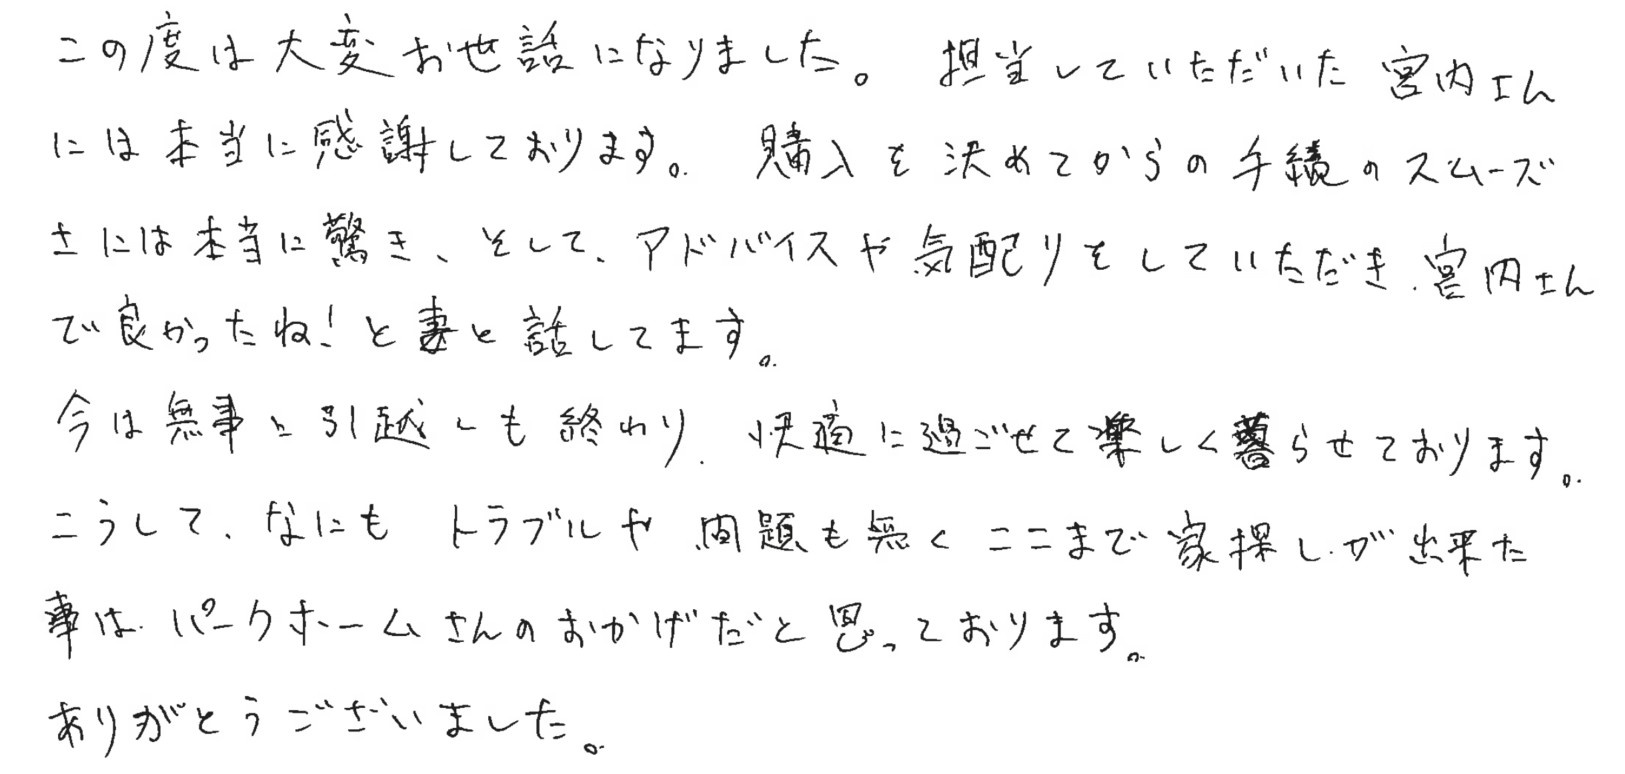 この度は大変お世話になりました。 担当していただいた宮内さん
には本当に感謝しております。 購入を決めてからの手続のスムーズ
さには本当に驚き、そして、アドバイスや気配りをしていただき、宮内さん
で良かったね！と妻と話してます。
今は無事に引越しも終わり、快適に過ごせて楽しく暮らせております。
こうして、なにもトラブルや問題も無くここまで家探しが出来た
事は、パークホームさんのおかげだと思っております。
ありがとうございました。